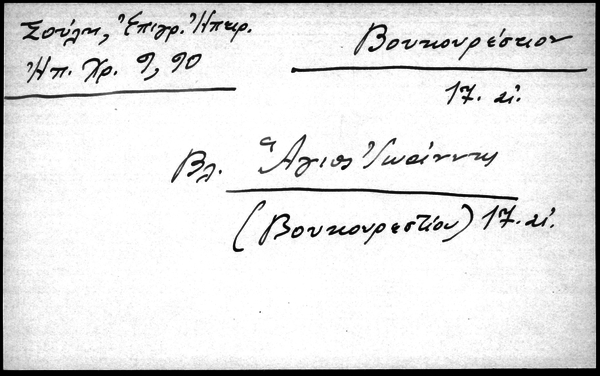 Σούλη, Ἐπιγρ. Ἠπειρ.
Ἠπ. Χρ. 9, 90
Βουκουρέστιον
17. αἰ.
Βλ. Ἅγιος Ἰωάννης
(Βουκουρεστίου) 17. αἰ.